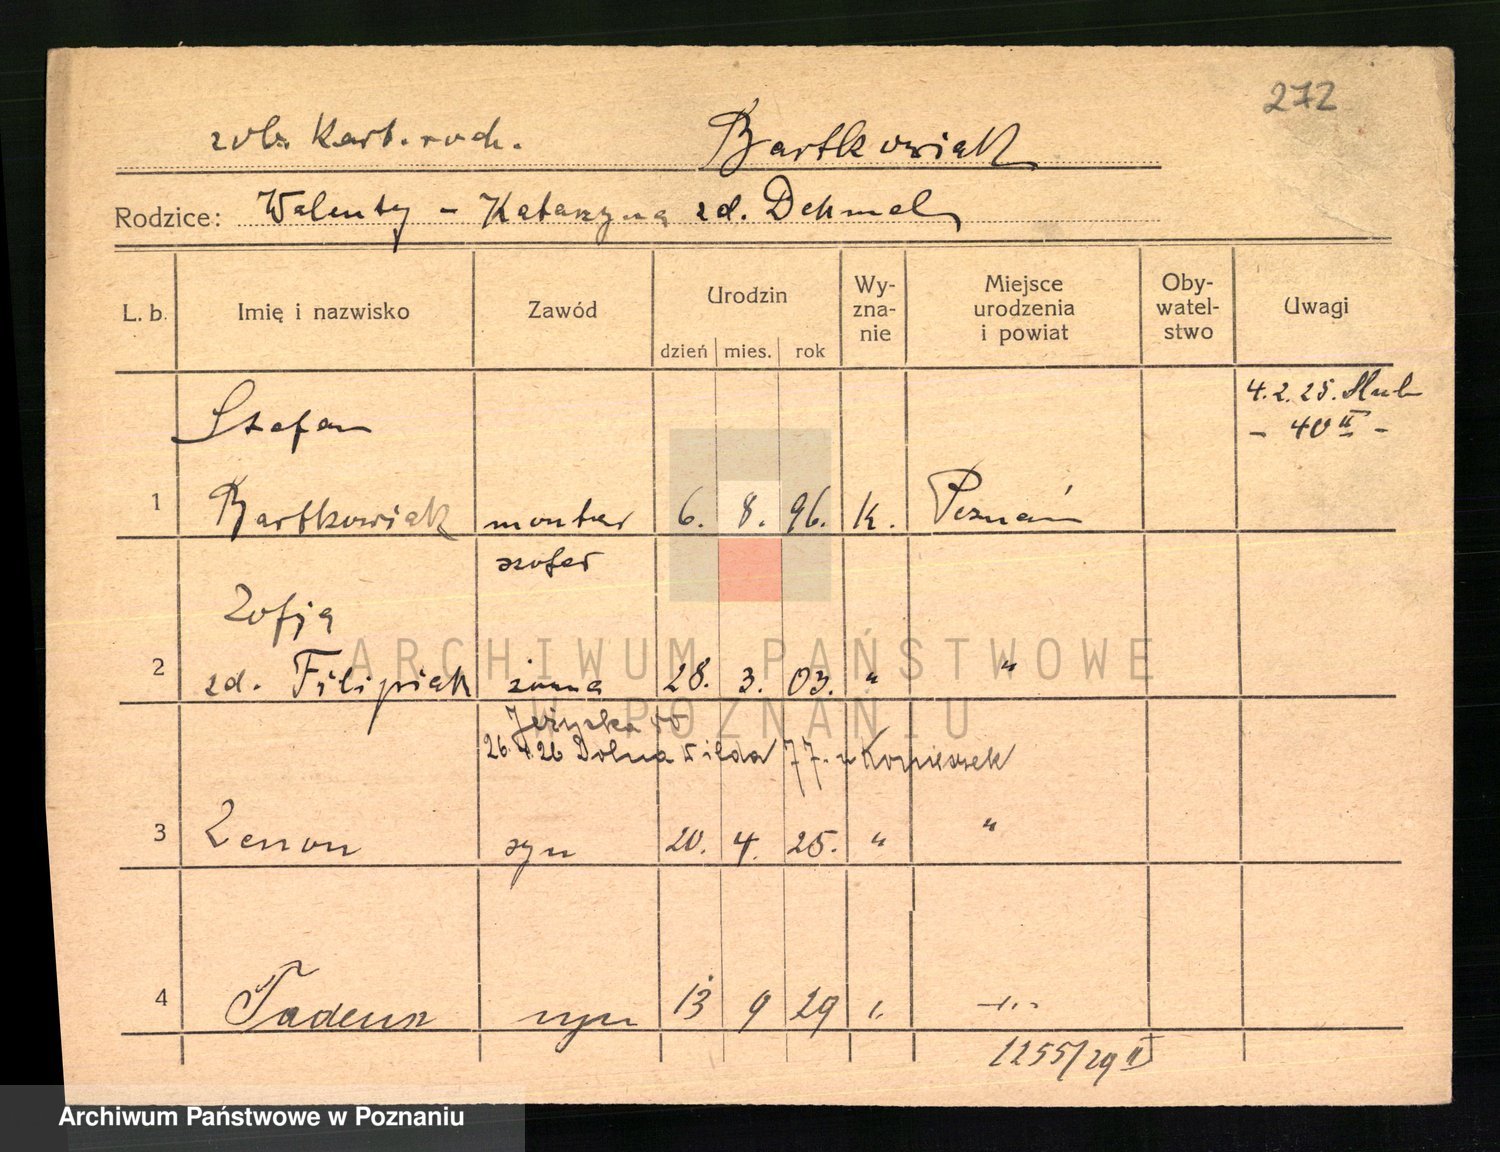 272
zob. Kart. rodz. Bartkowiak
Rodzice: Walenty - Katarzyna zd. Dehmel
L. b. Imię i nazwisko Zawód Urodzin Wy-zna-nie Miejsce urodzenia i powiat Oby-watel-stwo Uwagi
dzień mies. rok
4. 2. 25.
Stefan - 40 II -
1 Bartkowiak monter 6. 8. 96. k. Poznań
szofer
Zofja
ARCHIWUM PAŃSTWOWE
2 zd. Filipiak żona 28. 3. 03. " "
W POZNANIU
26 26 Dolna Wilda 77.
3 Zenon syn 20. 4. 25. " "
4 Tadeusz syn 13 9 29 " -"-
1255/29 II
Archiwum Państwowe w Poznaniu